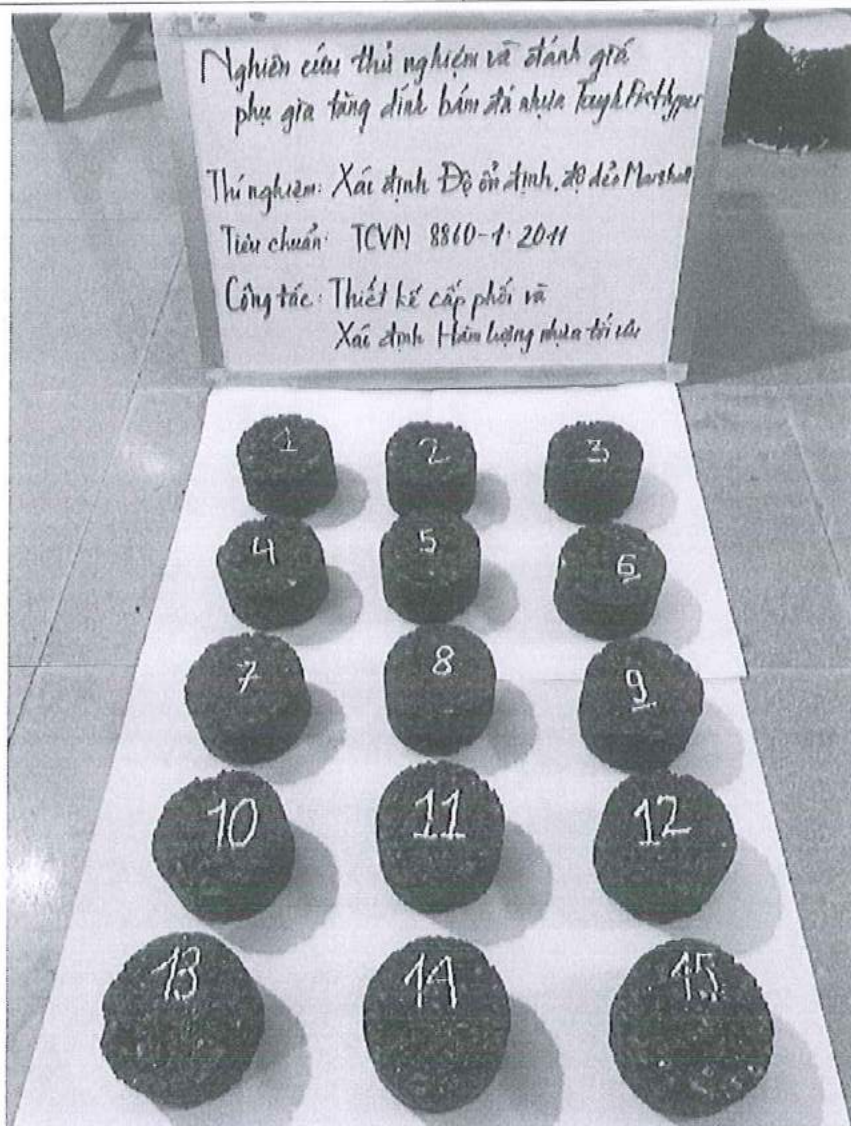 Nghiên cứu thử nghiệm và đánh giá
phụ gia tăng dính bám đá nhựa
Thí nghiệm: Xác định Độ ổn định, độ dẻo Marshall
Tiêu chuẩn: TCVN 8860-1:2011
Công tác: Thiết kế cấp phối và
Xác định Hàm lượng nhựa tối ưu
1 2 3
4 5 6
7 8 9
10 11 12
13 14 15